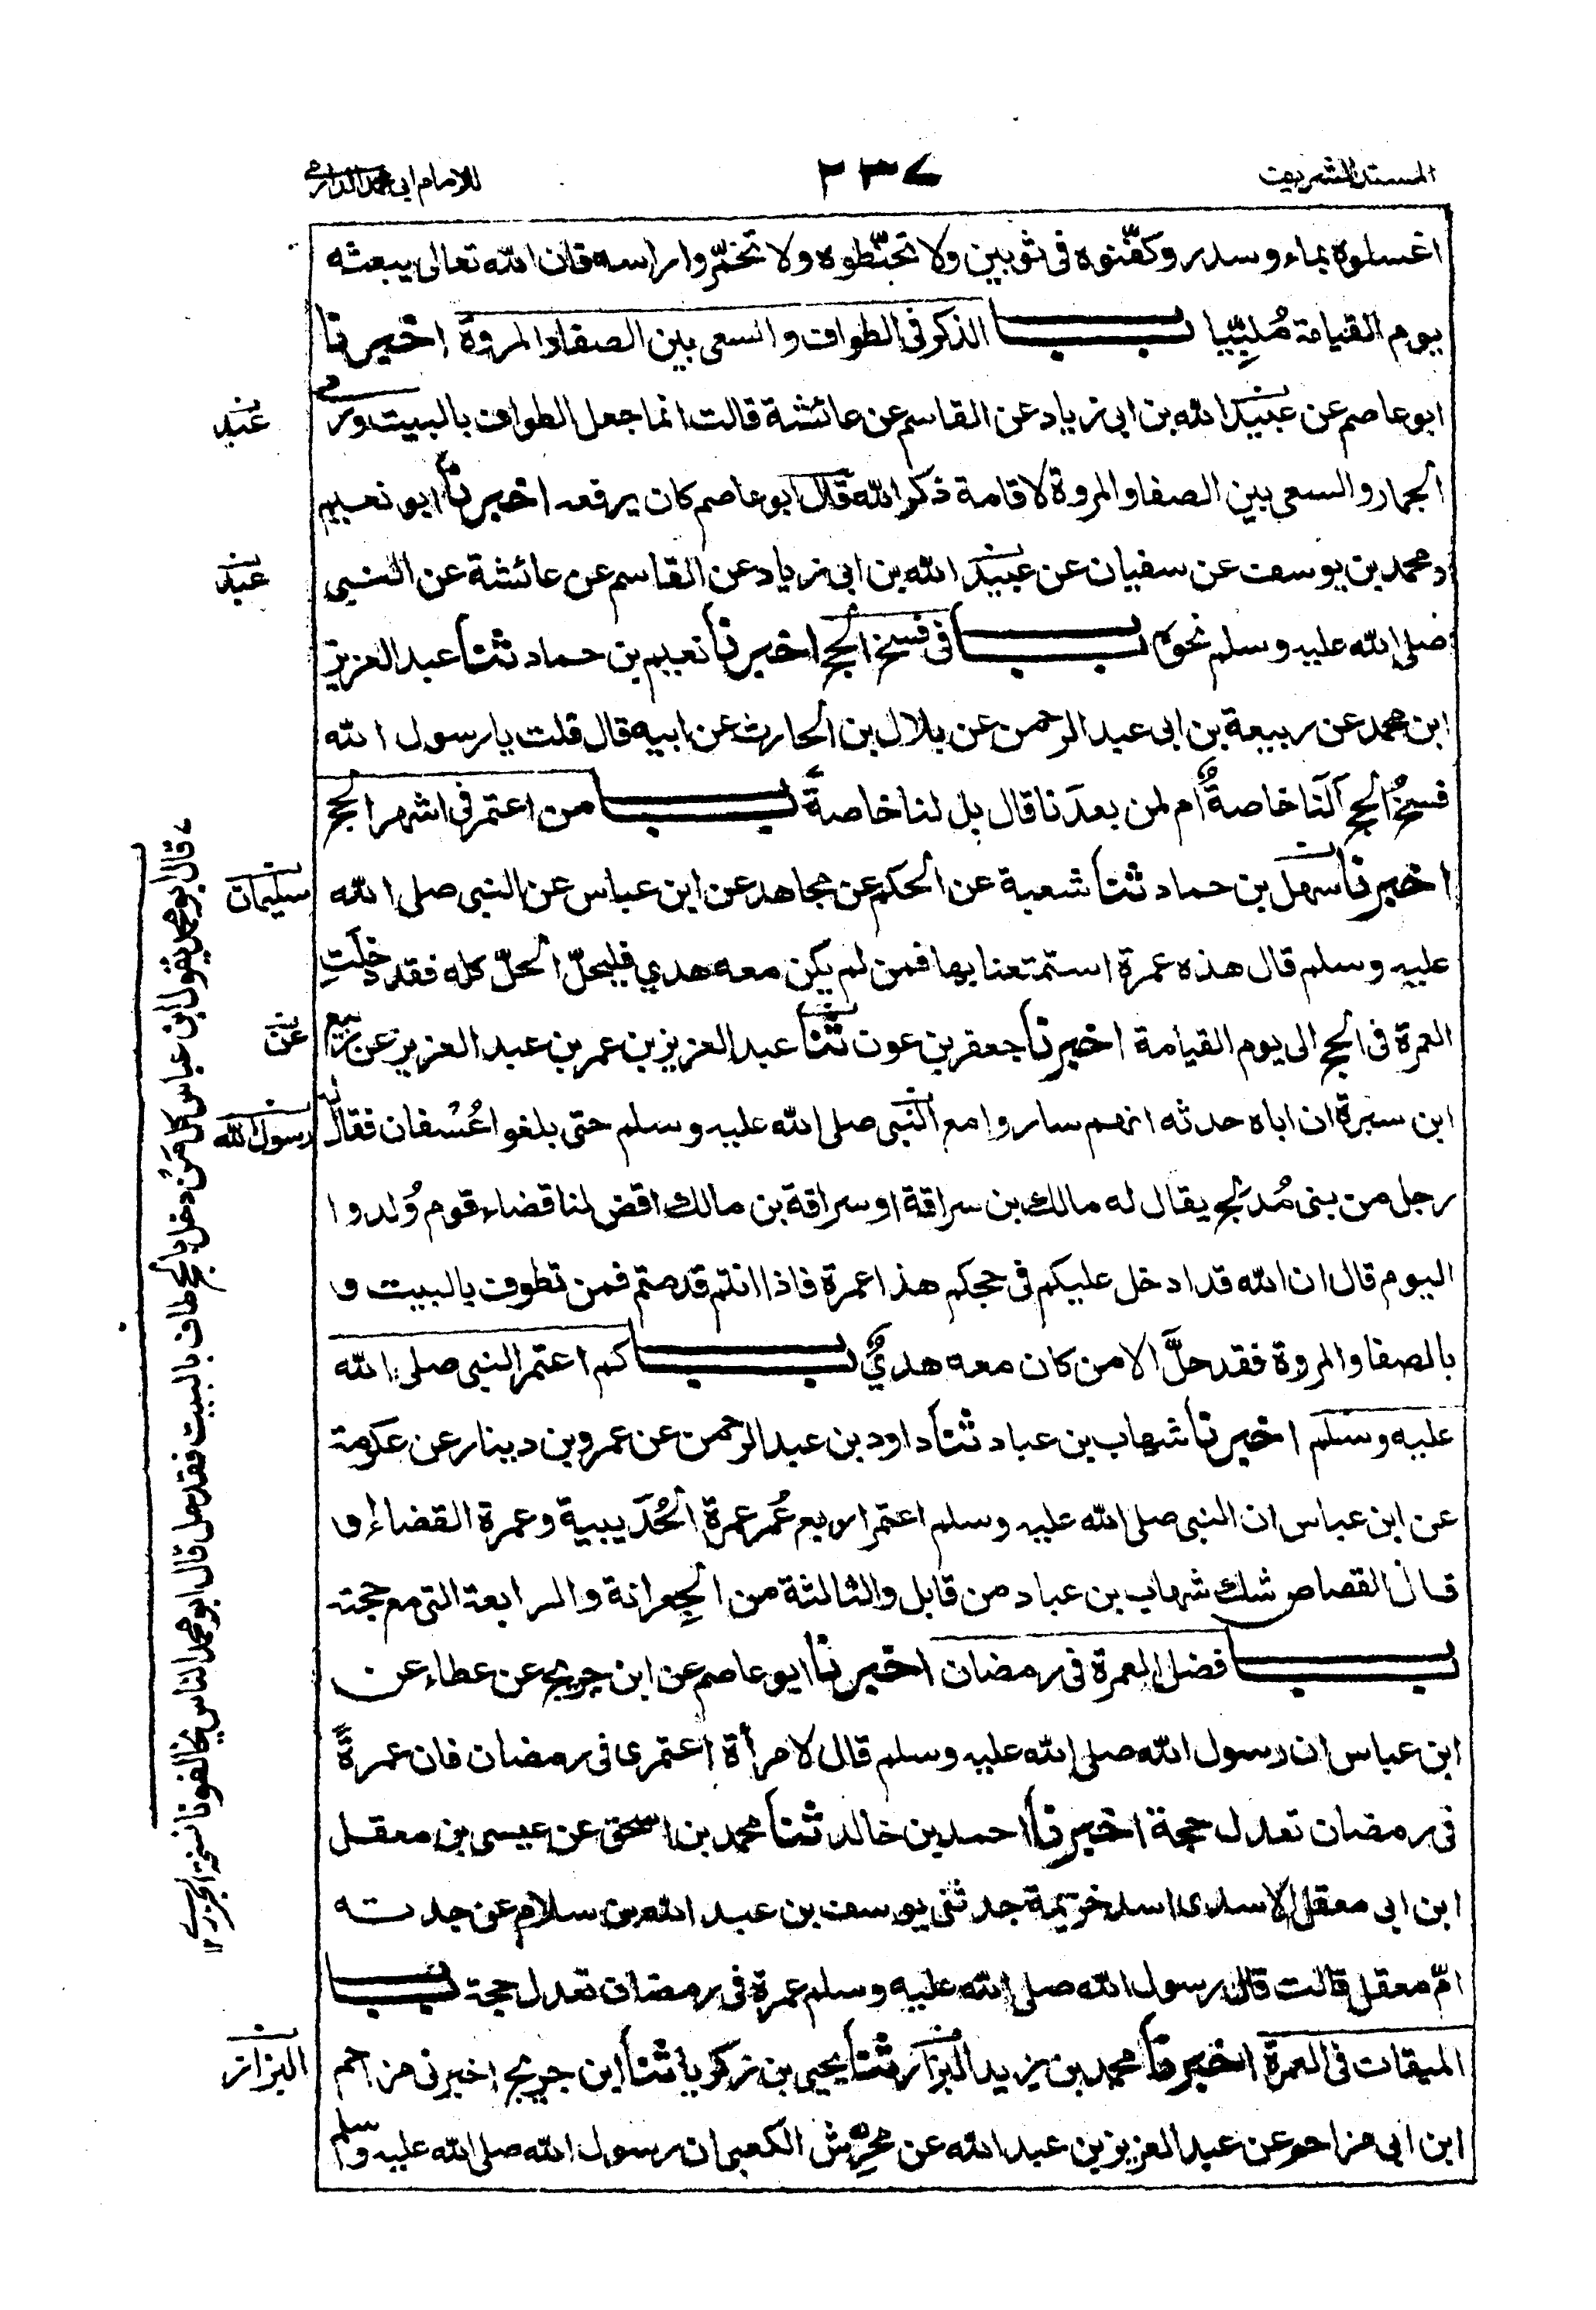 المسند الشريف ٢٣٧ للامام ابى محمد الدارمى
اغسلوه بماء وسدر وكفّنوه فى ثوبين ولا تحنّطوه ولا تخمّروا راسه فان الله تعالى يبعثه
يوم القيامة مُلبِّيا باب الذكر فى الطواف والسعى بين الصفا والمروة اخبرنا
ابو عاصم عن عبيد الله بن ابى زياد عن القاسم عن عائشة قالت انما جعل الطواف بالبيت ورمى
الجمار والسعى بين الصفا والمروة لاقامة ذكر الله قال ابو عاصم كان يرفعه اخبرنا ابو نعيم
ومحمد بن يوسف عن سفيان عن عبيد الله بن ابى زياد عن القاسم عن عائشة عن النبى
صلى الله عليه وسلم نحوه باب فى فسخ الحج اخبرنا نعيم بن حماد ثنا عبد العزيز
ابن محمد عن ربيعة بن ابى عبد الرحمن عن بلال بن الحارث عن ابيه قال قلت يا رسول الله
فسخُ الحج آلنا خاصةٌ ام لمن بعدَنا قال بل لنا خاصةً باب من اعتمر فى اشهر الحج
اخبرنا سهل بن حماد ثنا شعبة عن الحكم عن مجاهد عن ابن عباس عن النبى صلى الله
عليه وسلم قال هذه عمرة استمتعنا بها فمن لم يكن معه هدي فليحلّ الحلّ كله فقد دخلَتِ
العمرة فى الحج الى يوم القيامة اخبرنا جعفر بن عون ثنا عبد العزيز بن عمر بن عبد العزيز عن ربيع
ابن سبرة ان اباه حدثه انهم ساروا مع النبى صلى الله عليه وسلم حتى بلغوا عُسْفان فقال له
رجل من بنى مُدلج يقال له مالك بن سراقة او سراقة بن مالك اقض لنا قضاء قوم وُلدوا
اليوم قال ان الله قد ادخل عليكم فى حجكم هذا عمرة فاذا انتم قدمتم فمن تطوف بالبيت و
بالصفا والمروة فقد حلَّ الا من كان معه هديٌ باب كم اعتمر النبى صلى الله
عليه وسلم اخبرنا شهاب بن عباد ثنا داود بن عبد الرحمن عن عمرو بن دينار عن عكرمة
عن ابن عباس ان النبى صلى الله عليه وسلم اعتمر اربع عُمَر عمرة الحُدَيبية وعمرة القضاء او
قال القصاص شك شهاب بن عباد من قابل والثالثة من الجِعرانة والرابعة التى مع حجته
باب فضل العمرة فى رمضان اخبرنا ابو عاصم عن ابن جريج عن عطاء عن
ابن عباس ان رسول الله صلى الله عليه وسلم قال لامرأة اعتمرى فى رمضان فان عمرةً
فى رمضان تعدل حجة اخبرنا احمد بن خالد ثنا محمد بن اسحق عن عيسى بن معقل
ابن ابى معقل الاسدى اسد خزيمة حدثنى يوسف بن عبد الله بن سلام عن جدته
امّ معقل قالت قال رسول الله صلى الله عليه وسلم عمرة فى رمضان تعدل حجة باب
الميقات فى العمرة اخبرنا محمد بن يزيد البزار ثنا يحيى بن زكريا ثنا ابن جريج اخبرنى مزاحم
ابن ابى مزاحم عن عبد العزيز بن عبد الله عن محرّش الكعبى ان رسول الله صلى الله عليه وسلم
عبد
عبد
سليمان
عن
رسول الله
البزاز
قال ابو محمد يقول ابن عباس كل مَن دخل بالحج طاف بالبيت فقد حل قال ابو محمد الناس يخالفونه نسخة